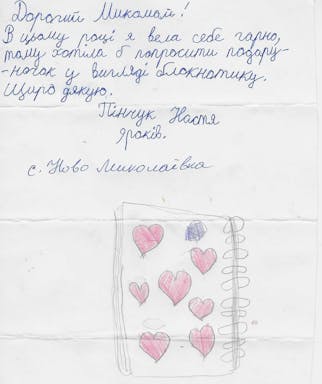 Дорогий Миколай!
В цьому році я вела себе гарно,
тому хотіла б попросити подару-
-ночок у вигляді блокнотику.
Щиро дякую.
Пінчук Настя
9років.
с. Ново Миколаївка